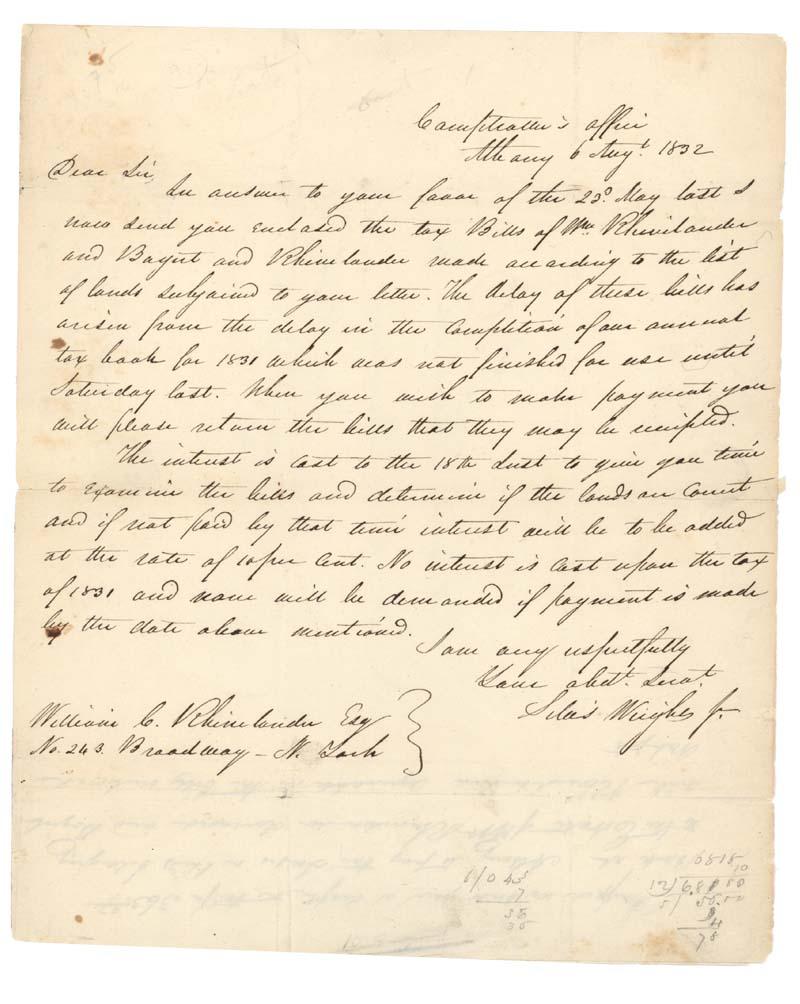 Comptroller's office
Albany 6 Augt. 1832
Dear Sir,
In answer to your favor of the 23d. May last I
now send you enclosed the tax Bills of Wm Rhinelander
and Bayert and Rhinelander made according to the list
of lands subjoined to your letter. The delay of these bills has
arisen from the delay in the completion of our annual
tax book for 1831 which was not finished for use until
Saturday last. When you wish to make payment you
will please return the bills that they may be receipted.
The interest is cast to the 18th Inst to give you time
to examine the bills and determine if the lands are correct
and if not paid by that time interest will be to be added
at the rate of 10 per cent. No interest is cast upon the tax
of 1831 and none will be demanded if payment is made
by the date above mentioned.
I am very respectfully
Your obdt. Servt.
Silas Wright Jr.
William C. Rhinelander Esq
No. 243. Broadway - N. York